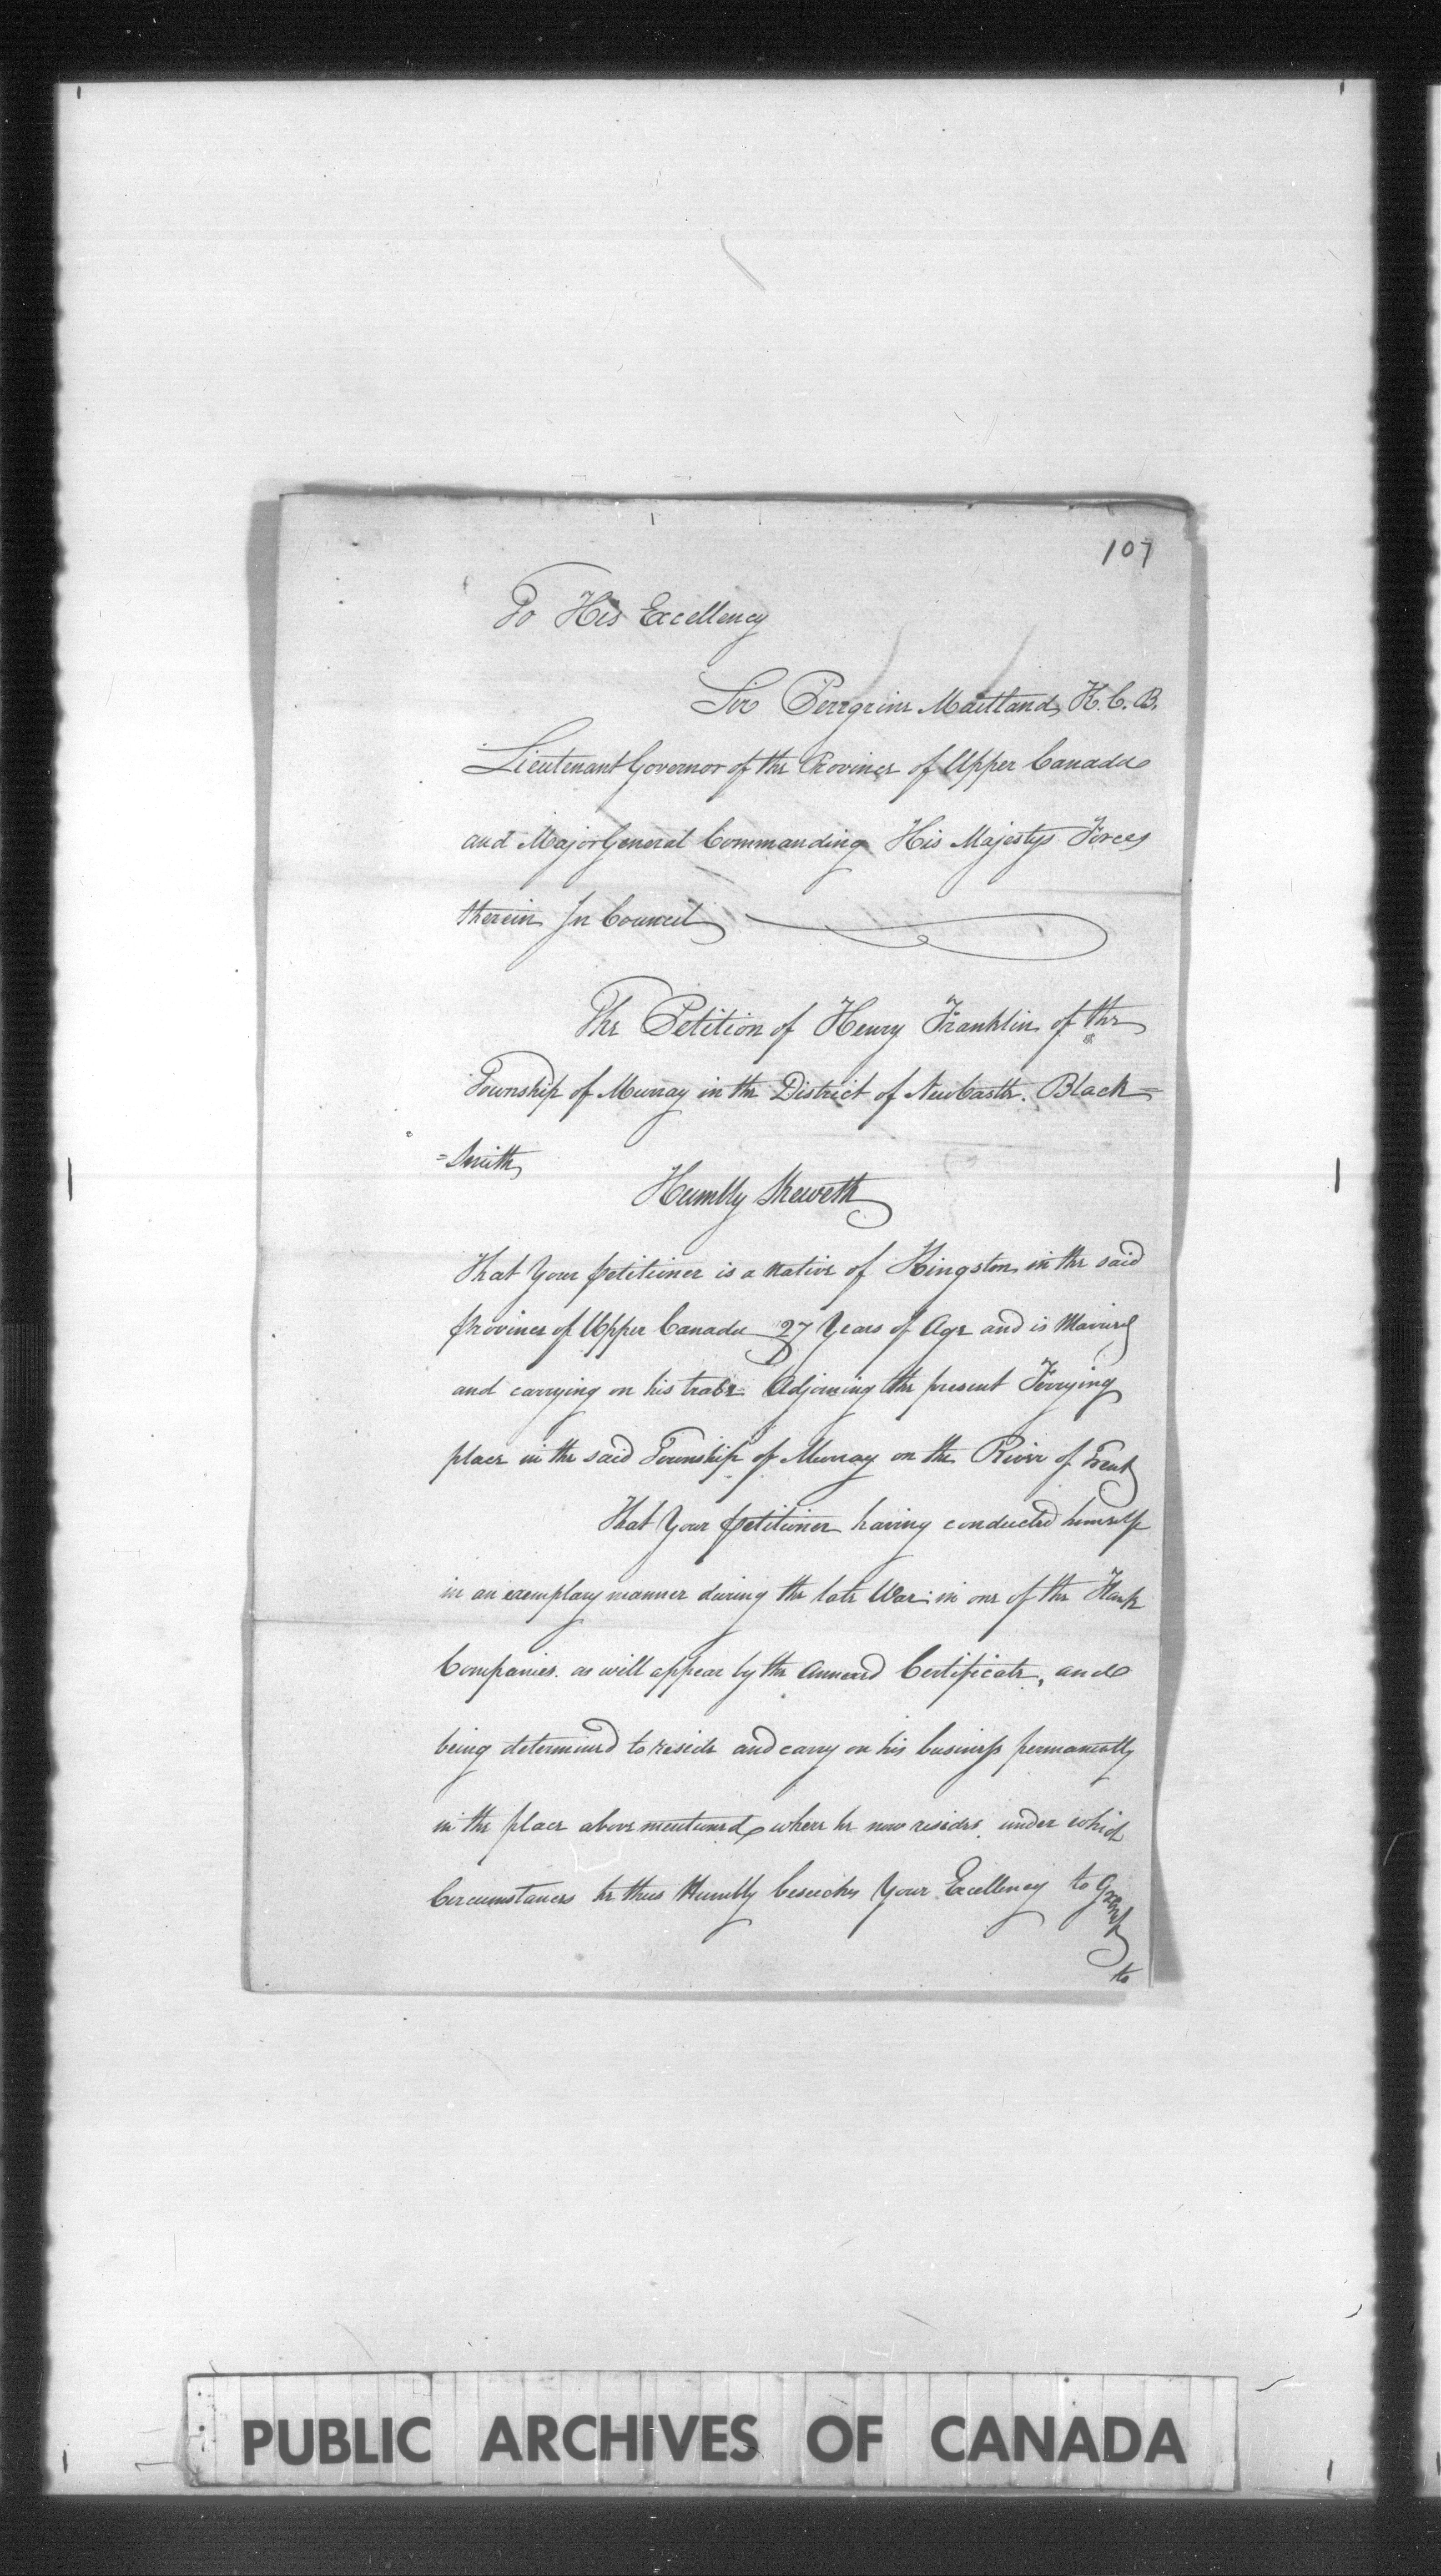 107
To His Excellency
Sir Peregrine Maitland, K.C.B.
Lieutenant Governor of the Province of Upper Canada
and Major General Commanding His Majestys Forces
therein In Council
The Petition of Henry Franklin of the
Township of Murray in the District of New Castle. Black=
=Smith
Humbly Sheweth
That Your petitioner is a native of Kingston in the said
province of Upper Canada 27 Years of Age and is Married
and carrying on his trade Adjoining the present Ferrying
place in the said Township of Murray on the River of Trent
That Your petitioner having conducted himself
in an exemplary manner during the late War in one of the Flank
Companies. as will appear by the Annexed Certificate, and
being determined to reside and carry on his business permanently
in the place above mentioned where he now resides. under which
Circumstances he thus Humbly beseeches Your Excellency to Grant
to
PUBLIC ARCHIVES OF CANADA